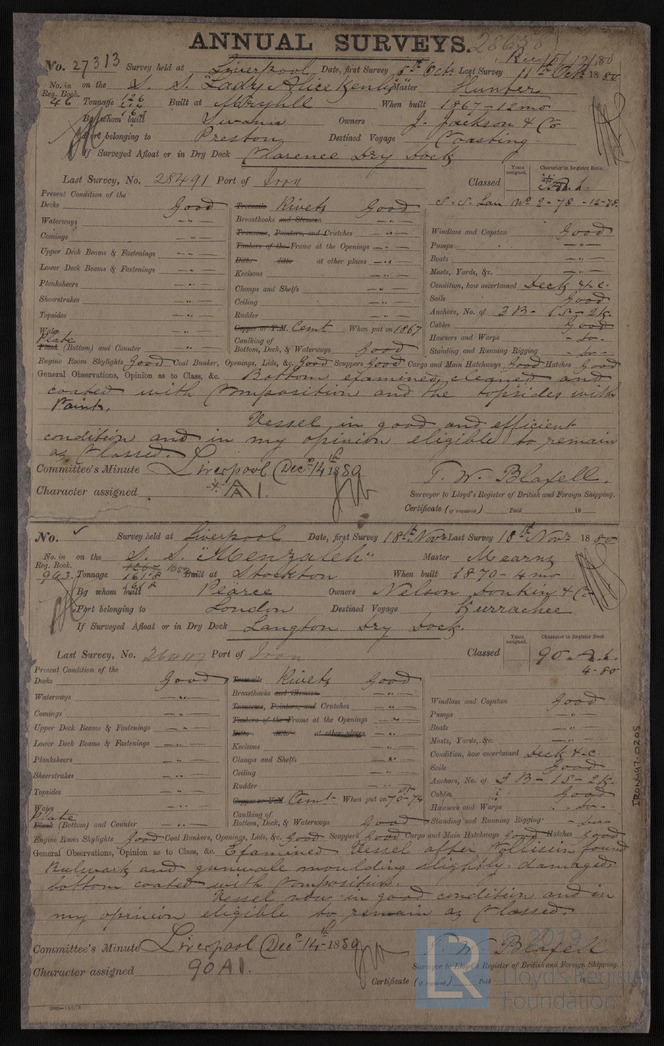 ANNUAL SURVEYS.
No. 27313 Survey held at Liverpool Date, first Survey 8th Octr Last Survey 11th Octr 1880
No. in on the S. S. "Lady Alice Kenlis" Master Hunter
Reg. Book.
46 Tonnage Built at Maryhill When built 1867-12mo
By whom built Swan & Co Owners J. Jackson & Co
Port belonging to Preston Destined Voyage Coasting
If Surveyed Afloat or in Dry Dock Clarence Dry Dock
Last Survey, No. 28491 Port of Iron Classed
Years assigned. Character in Register Book.
S. S. Lan No 2-78-12-78
Present Condition of the
Decks Good
Waterways
Comings
Upper Deck Beams & Fastenings
Lower Deck Beams & Fastenings
Planksheers
Sheerstrakes
Topsides
Wales
Plate
(Bottom) and Counter
Treenails Rivets Good
Breasthooks and Stemson
Transoms, Pointers, and Crutches
Timbers of the Frame at the Openings
Ditto ditto at other places
Keelsons
Clamps and Shelfs
Ceiling
Rudder
Copper or Y.M. Cemt When put on 1867
Caulking of
Bottom, Deck, & Waterways Good
Windlass and Capstan Good
Pumps
Boats
Masts, Yards, &c.
Condition, how ascertained Deck &c.
Sails Good
Anchors, No. of 3 B- 1 S- 2 K.
Cables Good
Hawsers and Warps
Standing and Running Rigging
Engine Room Skylights Good Coal Bunker, Openings, Lids, &c. Good Scuppers Good Cargo and Main Hatchways Good Hatches Good
General Observations, Opinion as to Class, &c. Bottom examined, cleaned and
coated with Composition and the topsides with
Paint.
Vessel in good and efficient
condition and in my opinion eligible to remain
as Classed.
Committee's Minute Liverpool Decr 14th 1880
Character assigned A1.
T. W. Blafell.
Surveyor to Lloyd's Register of British and Foreign Shipping.
Certificate (if required) Paid 18
No. Survey held at Liverpool Date, first Survey 18th Novr Last Survey 18th Novr 1880
No. in on the S. S. "Menzaleh" Master Mearns
Reg. Book.
943 Tonnage Built at Stockton When built 1870-4mo
By whom built Pearce Owners Nelson, Donkin & Co
Port belonging to London Destined Voyage Kurrachee
If Surveyed Afloat or in Dry Dock Langton Dry Dock.
Last Survey, No. Port of Iron Classed
Years assigned. Character in Register Book
90 A.1.
4-80
Present Condition of the
Decks Good
Waterways
Comings
Upper Deck Beams & Fastenings
Lower Deck Beams & Fastenings
Planksheers
Sheerstrakes
Topsides
Wales
Plate
(Bottom) and Counter
Treenails Rivets Good
Breasthooks and Stemson
Transoms, Pointers, and Crutches
Timbers of the Frame at the Openings
Ditto ditto at other places
Keelsons
Clamps and Shelfs
Ceiling
Rudder
Copper or Y.M. Cemt When put on 70-74
Caulking of
Bottom, Deck, & Waterways Good
Windlass and Capstan Good
Pumps
Boats
Masts, Yards, &c.
Condition, how ascertained Deck &c
Sails Good
Anchors, No. of 3 B- 1 S- 2 K.
Cables Good
Hawsers and Warps
Standing and Running Rigging
Engine Room Skylights Good Coal Bunkers, Openings, Lids, &c. Good Scuppers Good Cargo and Main Hatchways Good Hatches Good
General Observations, Opinion as to Class, &c. Examined Vessel after Collision found
Bulwark and gunwale moulding slightly damaged
bottom coated with Composition.
Vessel now in good condition and in
my opinion eligible to remain as Classed.
Committee's Minute Liverpool Decr 14th 1880
Character assigned 90A1.
T. W. Blafell
Surveyor to Lloyd's Register of British and Foreign Shipping.
Certificate (if required) Paid
IRON497-0205
© 2019
LR Lloyd's Register
Foundation